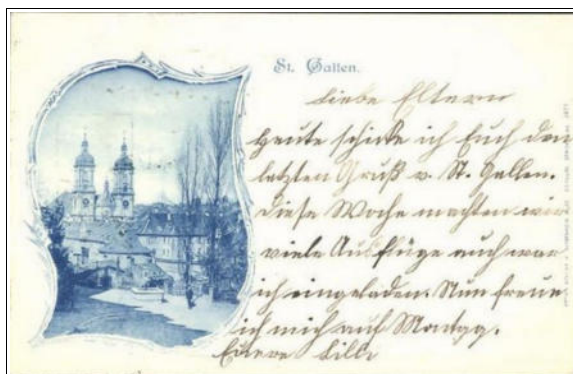 St. Gallen.
Liebe Eltern
Heute schicke ich Euch den
letzten Gruß v. St. Gallen.
Diese Woche machten wir
viele Ausflüge auch war
ich eingeladen. Nun freue
ich mich auf Montag.
Euere Lilli